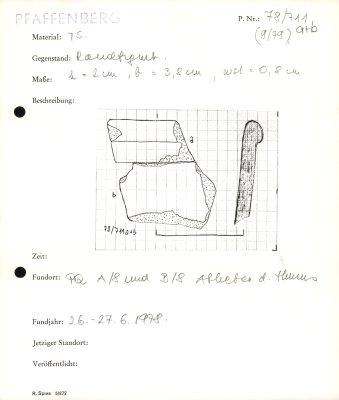 PFAFFENBERG
P. Nr.: 78/711
(9/79) a+b
Material: TS.
Gegenstand: Randfrgmt.
Maße: h = 2cm, b = 3,8cm, wst = 0,8cm
Beschreibung:
a
b
78/711a+b
Zeit:
Fundort: PQ A/8 und B/8 Abheben d. Humus
Fundjahr: 26.-27.6.1978.
Jetziger Standort:
Veröffentlicht:
R. Spies 5/872